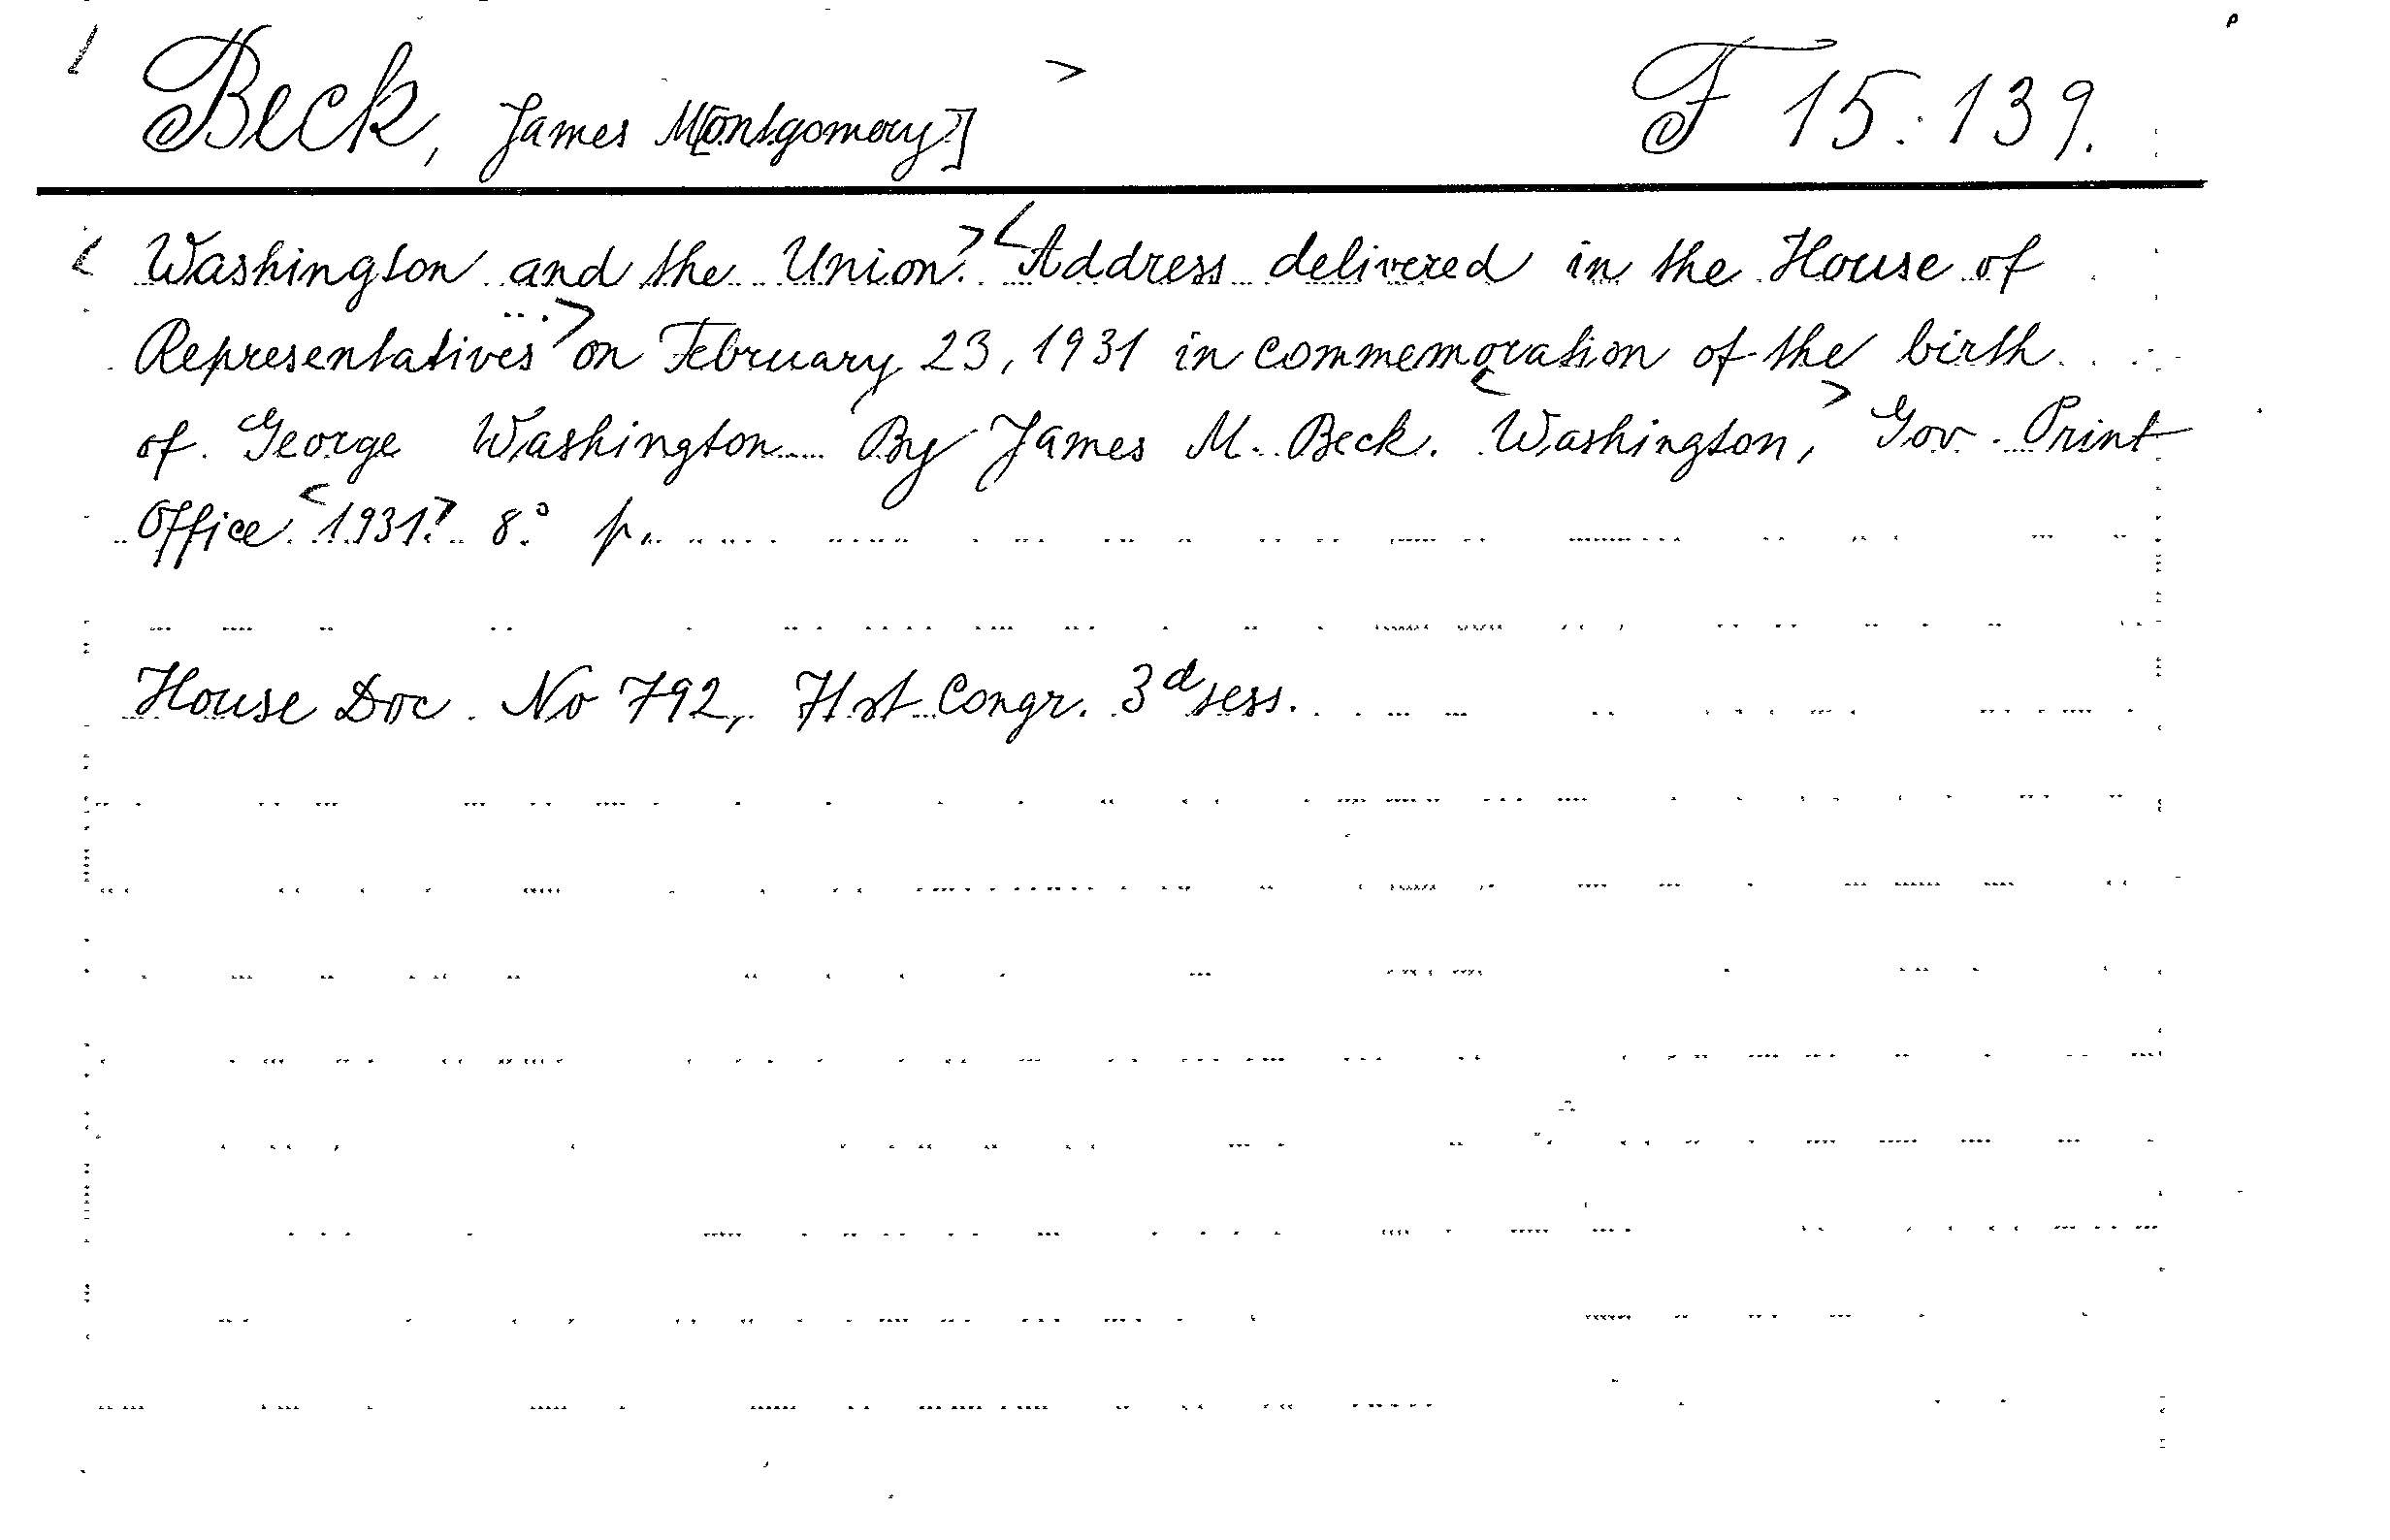 < Beck, James M[ontgomery] > F 15:139.
< Washington and the Union. > < Address delivered in the House of
Representatives ... > on February 23, 1931 in commemoration of the birth
of George Washington By James M. Beck. < Washington, > Gov. Print
Office < 1931. > 8° p.
House Doc. No 792, 71st Congr. 3d sess.